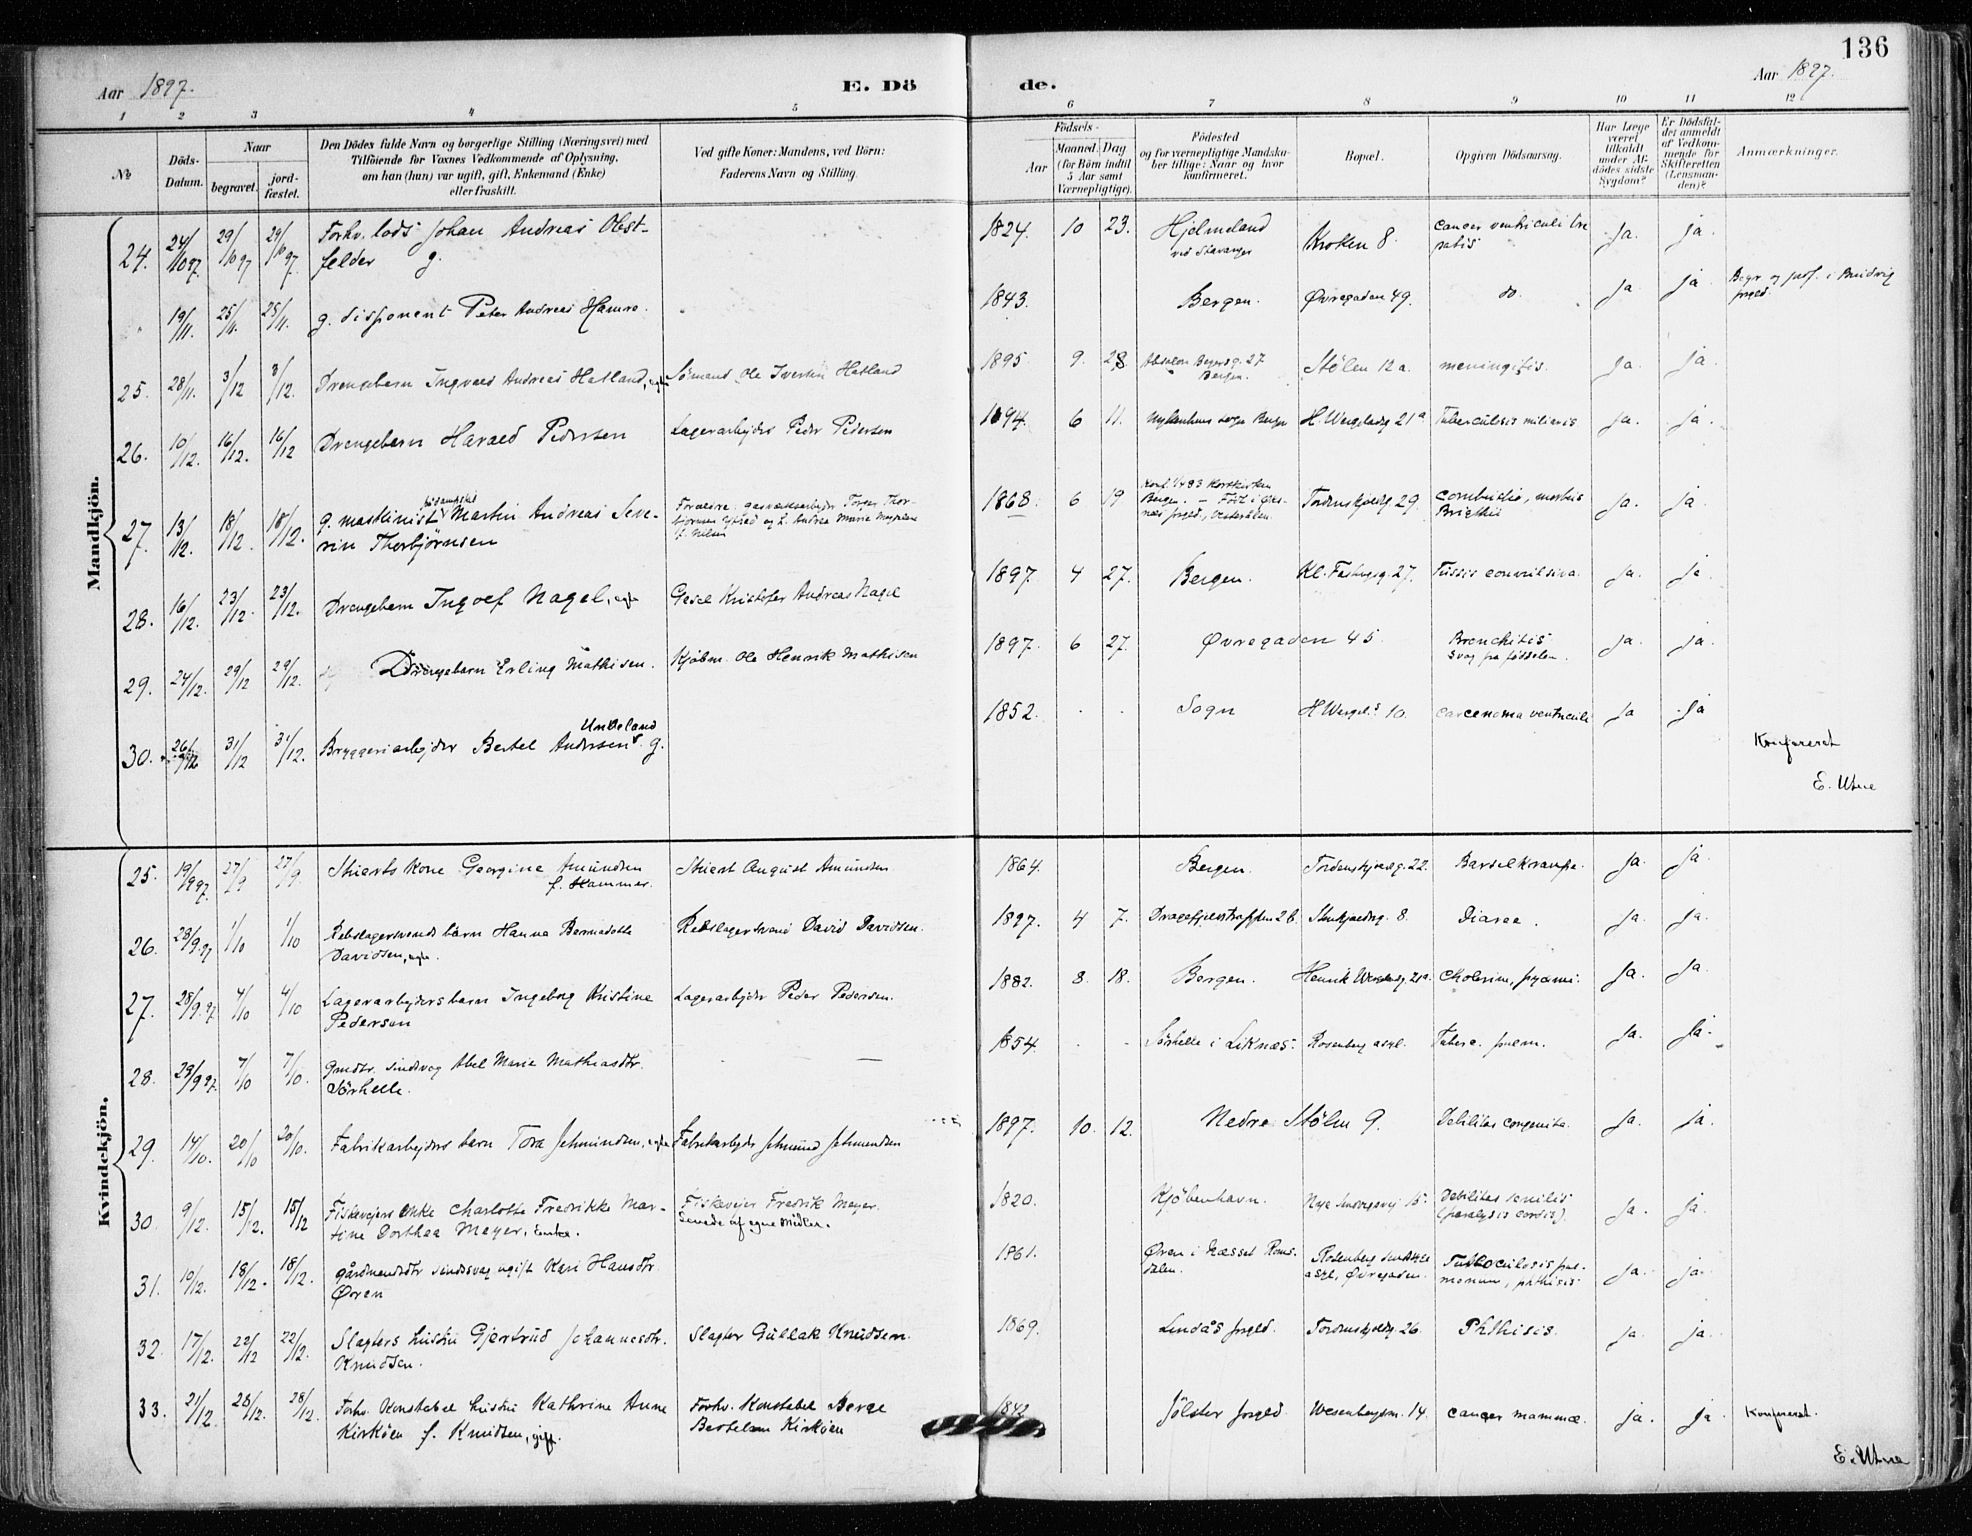 136
Aar 1897.
E. Dö
de.
Aar 1897.
1 2 3 4 5 6 7 8 9 10 11 12
№
Döds-
Datum.
Naar
begravet.
jord-
fæstet.
Den Dödes fulde Navn og borgerlige Stilling (Næringsvei) med
Tilföiende for Voxnes Vedkommende af Oplysning,
om han (hun) var ugift, gift, Enkemand (Enke)
eller fraskilt.
Ved gifte Koner: Mandens, ved Börn:
Faderens Navn og Stilling.
Födsels-
Aar
Maaned. Dag
(for Börn indtil
5 Aar samt
Værnepligtige).
Födested
og for værnepligtige Mandska-
ber tillige: Naar og hvor
konfirmeret.
Bopæl.
Opgiven Dödsaarsag.
Har Læge
været
tilkaldt
under Af-
dödes sidste
Sygdom?
Er Dödsfal-
det anmeldt
af Vedkom-
mende for
Skifteretten
(Lensman-
den)?
Anmærkninger.
Mandkjön.
24. 24/10 97. 29/10 97 29/10 97. Forhv. lods Johan Andreas Obst-
felder g. 1824. 10 23. Hjelmeland
ved Stavanger Kroken 8. cancer ventriculi
Ja. ja.
" 19/11. 25/11. 25/11. g. disponent Peter Andreas Hamre. 1843. Bergen. Øvregaden 49. do. Ja ja
25. 28/11. 3/12 3/12. Drengebarn Ingvald Andreas Hatland, egte Sömand Ole Iversen Hatland 1895 9. 28. Absalon Beyersg. 27
Bergen. Stölen 12 a. meningitis. Ja. ja
26. 10/12. 16/12. 16/12 Drengebarn Harald Pedersen Lagerarbejder Peder Pedersen 1894. 6 11. Bergen H. Wergelsdsg 21 a Tuberculosis miliaris Ja. ja.
27. 13/12. 18/12. 18/12. g. maskinist Martin Andreas Seve-
rin Thorbjörnsen 1868. 6 19 Tordenskjoldsg 29. combustio, morbus
Brightii Ja. ja.
28. 16/12. 23/12. 23/12. Drengebarn Ingolf Nagel, egte Gesel Kristofer Andreas Nagel 1897. 4 27. Bergen. 27. Tussis convulsiva. Ja. ja.
29. 24/12. 29/12 29/12. Drengebarn Erling Mathisen. Kjöbm. Ole Henrik Mathisen 1897. 6 27. Øvregaden 45. Bronchitis
svag fra födselen. Ja. ja.
Undeland
30. 26/12 31/12 31/12. Bryggeriarbejder Bertel Andersen g. 1852. Sogn H. Wergel.s 10. carcenoma ventriculi Ja ja
Konfereret
E. Utne
Kvindekjön.
25. 19/9 97. 27/9 27/9. Stuerts kone Georgine Amundsen
f. Hammer. Stuert August Amundsen 1864. Bergen. Tordenskjoldsg. 22. Barselkrampe. Ja. ja.
26. 23/9 97 1/10 1/10 Rebslagersvends barn Hanna Bernadotte
Davidsen, egte. Rebslagersvend David Davidsen. 1897. 4 7. Diaree. Ja. ja.
27. 28/9 97. 4/10 4/10 Lagerarbejders barn Ingeborg Kristine
Pedersen Lagerarbejder Peder Pedersen. 1882. 8. 18. Bergen. Henrik Wergelsg. 21a. Cholerine, pyæmi. Ja. ja
28. 29/9 97. 7/10 7/10. Gmdtr. sindssvag Abel Marie Mathiasdtr.
Sörhelle. 1854. Sörhelle i Liknæs. Rosenberg asyl. Tuberc. pulm. Ja. ja.
29. 14/10. 20/10 20/10. Fabrikarbejders barn Tora Johnsen, egte 1897. 10. 12. Nedre Stölen 9. Debilitas congenita. Ja. ja.
30. 9/12. 15/12. 15/12 Fiskevejers enke Charlotte Fredrikke Mar-
tine Dorthea Meyer, Enke. Fiskevejer Fredrik Meyer.
Levede af egne Midler. 1820. Kjöbenhavn. Debilitas senilis
(paralysis cordis). Ja. ja.
31. 10/12. 18/12. 18/12. gårdmandsdtr sindssvag ugift Kari Hansdtr.
Øoren 1861. Øren i Næsset Roms-
dalen. Rosenberg
asyl, Øvregaden. Tuberculosis pul-
monum, phthisis. Ja. ja.
32. 17/12. 22/12 22/12. Slagters hustru Gjertrud Johannesdtr.
Knudsen. Slagter Gullak Knudsen. 1869. Lindås prgld. Tordenskjoldsg. 26. Phthisis. Ja. ja.
33. 21/12. 28/12. 28/12. Forhv. Konstabel hustru Kathrine Anne
Kirköen f. Knudsen, gift. Forhv. Konstabel Berge
Bertelsen Kirköen 1842. Jölster prgld. Wesenbergsm. 14. cancer mammæ. Ja. ja. Konfereret.
E. Utne